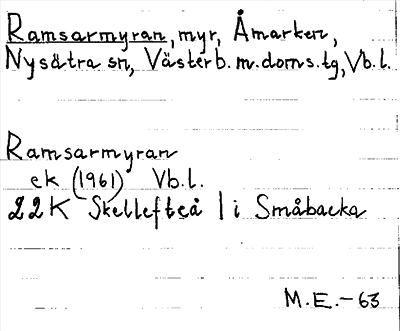 Ramsarmyran, myr, Åmarken,
Nysätra sn, Västerb. m. doms. tg, Vb. l.
Ramsarmyran
ek (1961) Vb. l.
22K Skellefteå 1 i Småbacka
M.E.-63